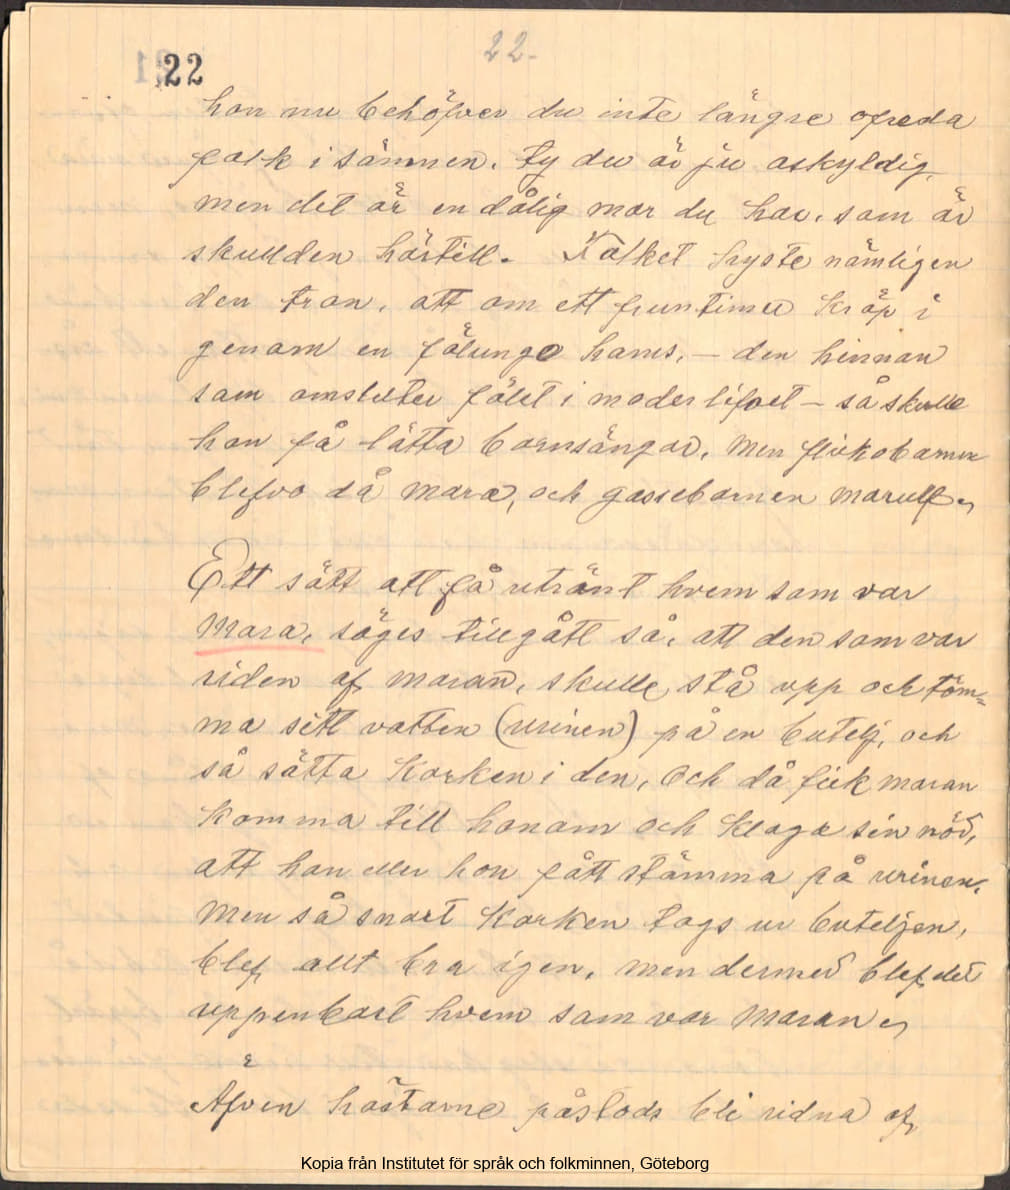 22-
22
hon nu behöfver du inte längre ofreda
folk i sömnen. Ty du är ju oskyldig,
men det är en dålig mor du har, som är
skullden härtill. Folket hyste nämligen
den tron, att om ett fruntimer kröp i
genom en fölunge hams, – den hinnan
som omsluter fölet i moderlifvet – så skulle
hon få lätta barnsängar, men flickobarnen
blefvo då mara, och gossebarnen marulf,
Ett sätt att få utrönt hvem som var
Mara, säges tillgått så, att den som var
riden af maran, skulle stå upp och töm=
ma sitt vatten (urinen) på en butelj, och
så sätta korken i den, och då fick maran
komma till honom och klaga sin nöd,
att han eller hon fått stämma på urinen.
Men så snart korken togs ur buteljen,
blef allt bra igen, men dermed blef det
uppenbart hvem som var maran,
Äfven hästarne påstods bli ridna af
Kopia från Institutet för språk och folkminnen, Göteborg